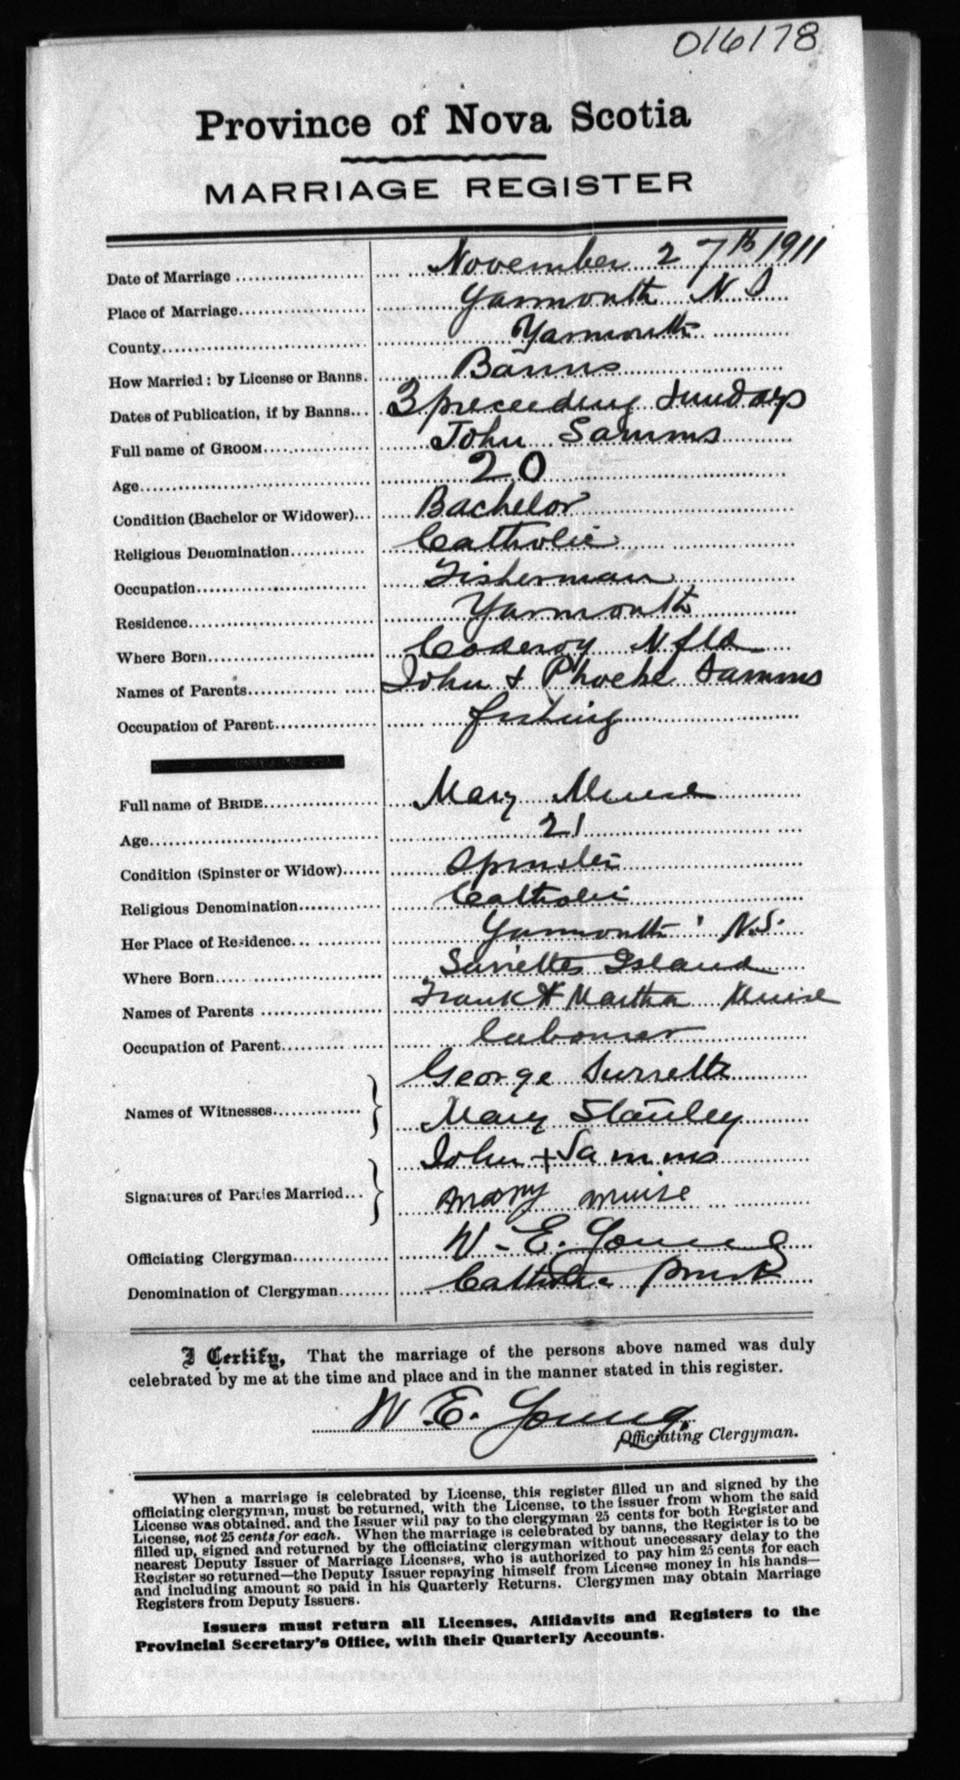 016178
Province of Nova Scotia
MARRIAGE REGISTER
Date of Marriage November 27th 1911
Place of Marriage Yarmouth N S
County Yarmouth
How Married: by License or Banns. Banns
Dates of Publication, if by Banns 3 preceeding Sundays
Full name of GROOM John Samms
Age 20
Condition (Bachelor or Widower) Bachelor
Religious Denomination Catholic
Occupation Fisherman
Residence Yarmouth
Where Born Coderoy Nfld
Names of Parents John & Phoebe Samms
Occupation of Parent fishing
Full name of BRIDE Mary Muise
Age 21
Condition (Spinster or Widow) Spinster
Religious Denomination Catholic
Her Place of Residence Yarmouth N.S.
Where Born Surrettes Island
Names of Parents Frank & Martha Muise
Occupation of Parent Labourer
Names of Witnesses George Surrette
Mary Stanley
Signatures of Parties Married John + Samms
Mary Muise
Officiating Clergyman W. E. Young
Denomination of Clergyman Catholic Priest
I Certify, That the marriage of the persons above named was duly
celebrated by me at the time and place and in the manner stated in this register.
W E. Young
Officiating Clergyman.
When a marriage is celebrated by License, this register filled up and signed by the
officiating clergyman, must be returned, with the License, to the issuer from whom the said
License was obtained, and the Issuer will pay to the clergyman 25 cents for both Register and
License, not 25 cents for each. When the marriage is celebrated by banns, the Register is to be
filled up, signed and returned by the officiating clergyman without unecessary delay to the
nearest Deputy Issuer of Marriage Licenses, who is authorized to pay him 25 cents for each
Register so returned—the Deputy Issuer repaying himself from License money in his hands—
and including amount so paid in his Quarterly Returns. Clergymen may obtain Marriage
Registers from Deputy Issuers.
Issuers must return all Licenses, Affidavits and Registers to the
Provincial Secretary's Office, with their Quarterly Accounts.